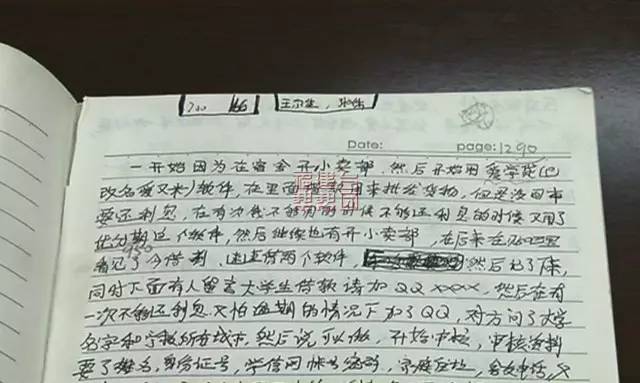 700 166 王
Date: page: 1290
一开始因为在宿舍开小卖部,然后开始用爱学贷(已
改名爱又米)软件,在里面借款用来批发货物,但是没回本
要还利息,在有次我不够的时候不够还利息的时候又用了
优分期这个软件,然后继续也有开小卖部,在后来在贴吧里
看见了今借到、速速借两个软件,然后记了下来,
同时下面有人留言大学生借款请加QQ××××,然后在有
一次不够还利息又怕逾期的情况下加了QQ,对方问了大学
名字和学校所在城市,然后说可以做,开始审核,审核资料
要了姓名,身份证号,学信网帐号密码,家庭住址,